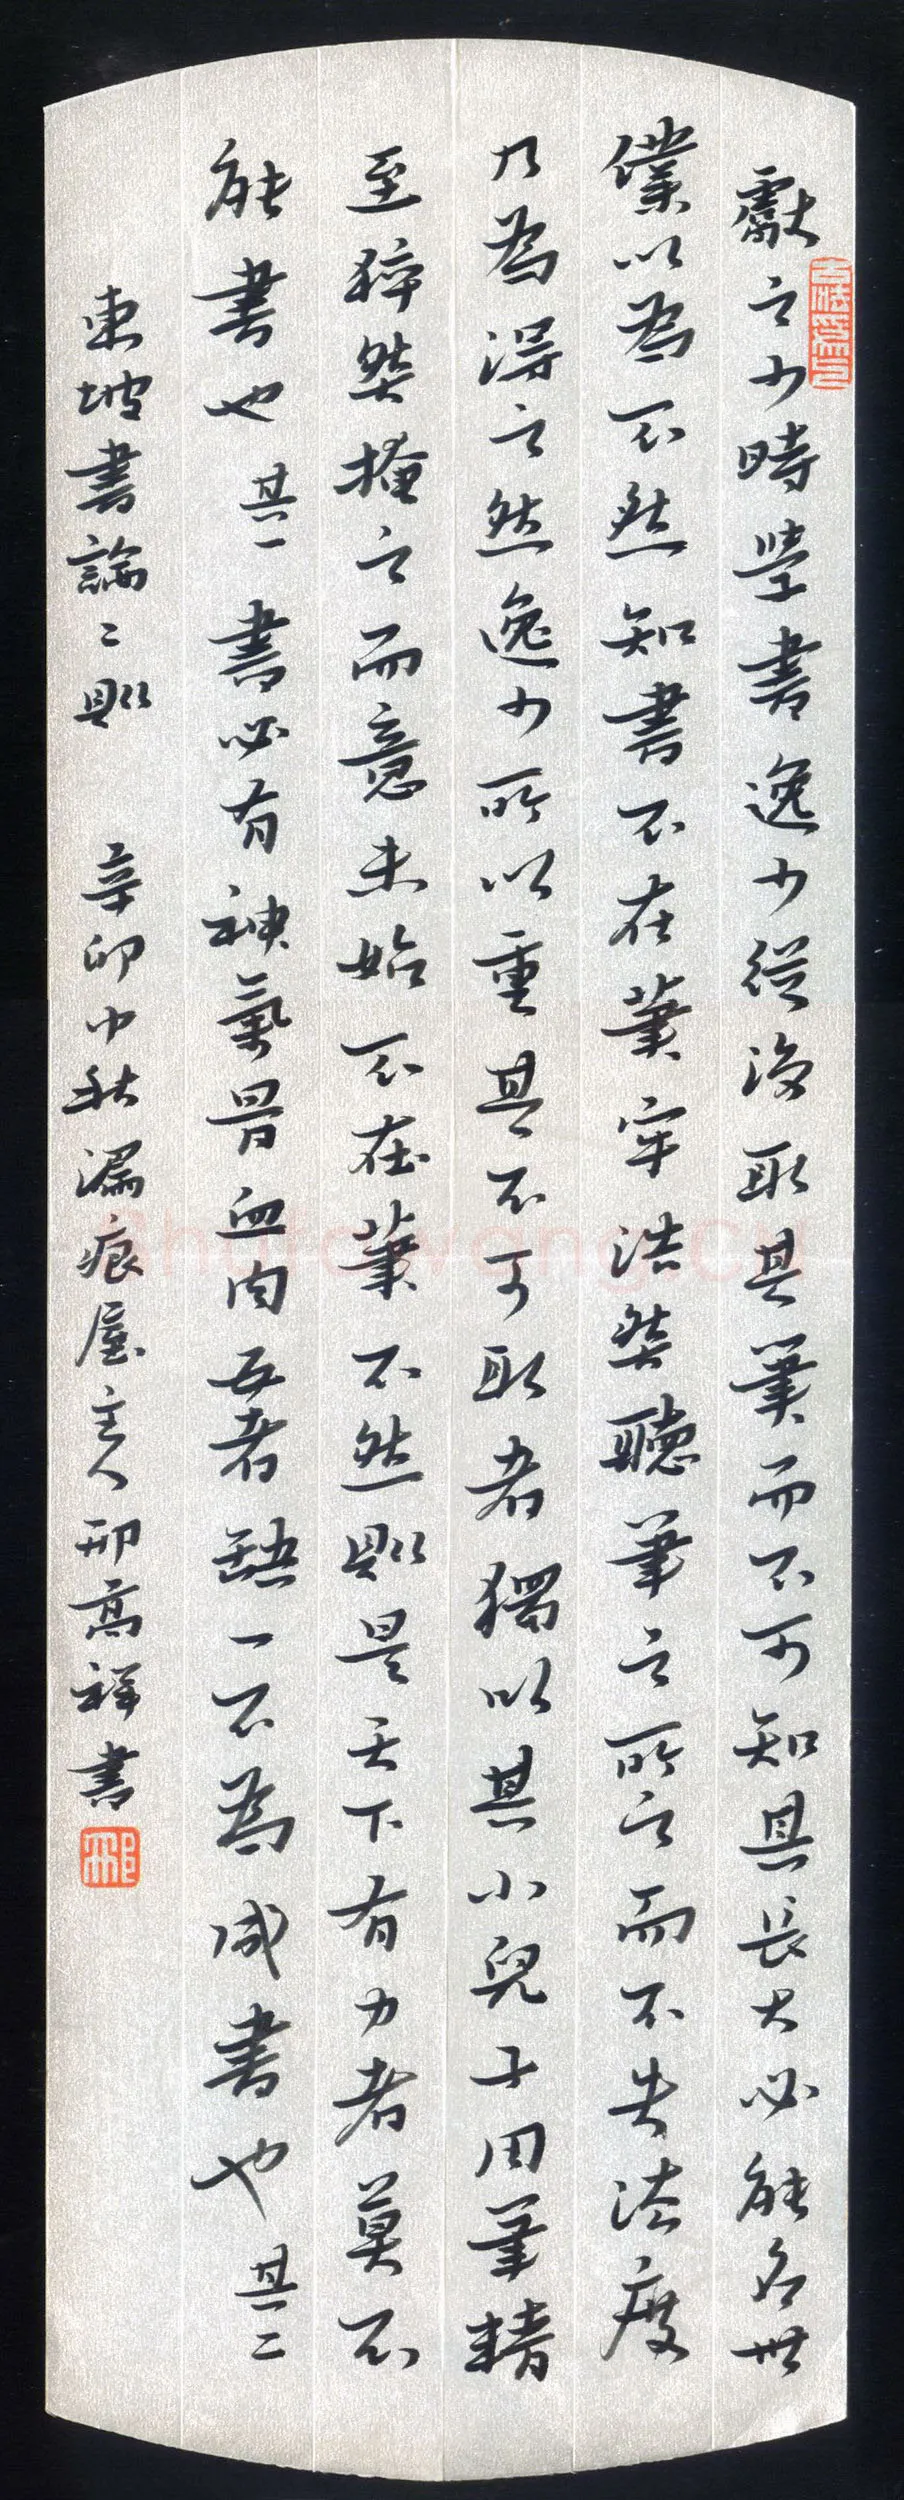 獻之少時學書逸少從後取其筆而不可知其長大必能名世
僕以為不然知書不在筆牢浩然聽筆之所之而不失法度
乃為得之然逸少所以重其不可取者獨以其小兒子用筆精
至猝然掩之而意未始不在筆不然則是天下有力者莫不
能書也 其一 書必有神氣骨血肉五者闕一不為成書也 其二
東坡書論二則 辛卯中秋漏痕屋主人邢高祥書
邢